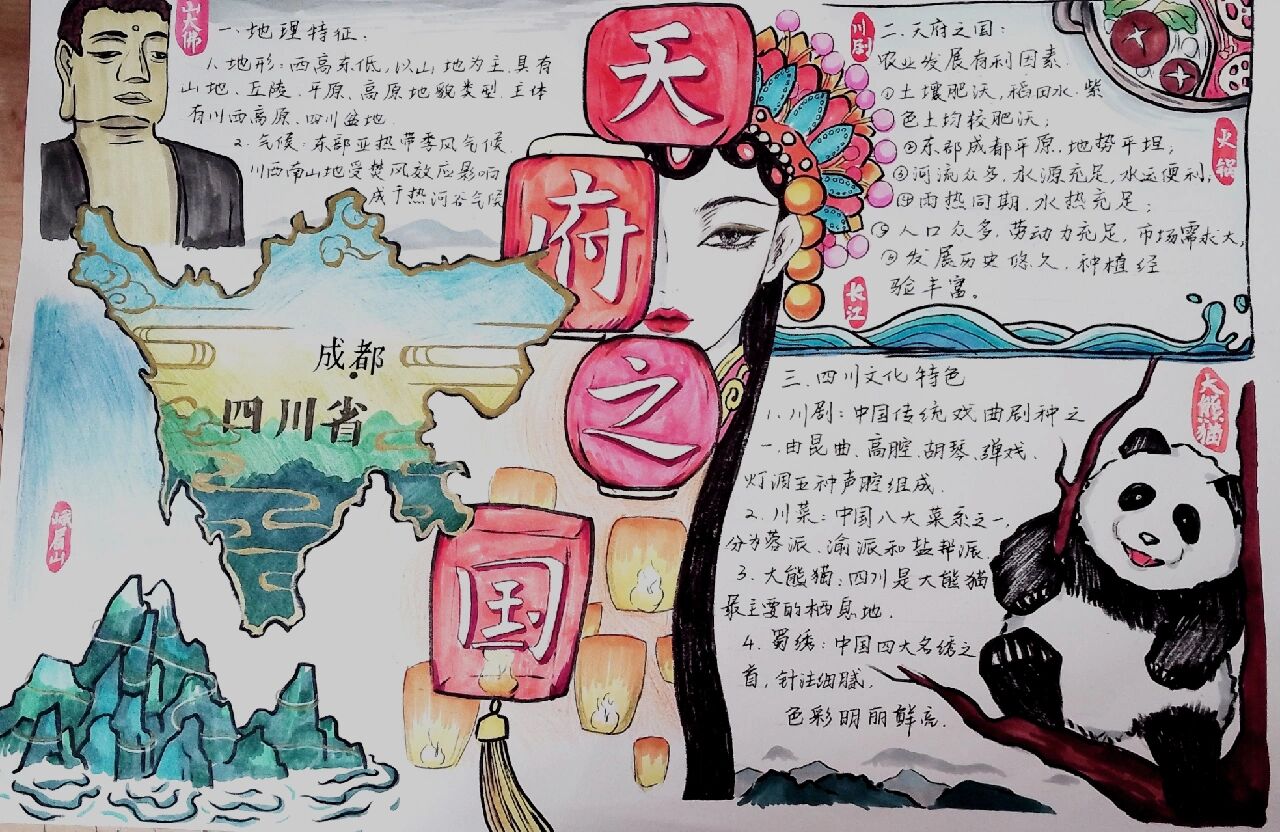 天府之国
山大佛
一、地理特征.
1、地形:西高东低,以山地为主,具有
山地、丘陵、平原、高原地貌类型.主体
有川西高原、四川盆地.
2、气候:东部亚热带季风气候.
川西南山地受焚风效应影响
成干热河谷气候
成都
四川省
峨眉山
川剧
二、天府之国:
农业发展有利因素.
①土壤肥沃,稻田水、紫
色土均较肥沃;
②东部成都平原,地势平坦;
③河流众多,水源充足,水运便利;
④雨热同期,水热充足;
⑤人口众多,劳动力充足,市场需求大;
⑥发展历史悠久,种植经
验丰富。
火锅
长江
三、四川文化特色
1、川剧:中国传统戏曲剧种之
一,由昆曲、高腔、胡琴、弹戏、
灯调五种声腔组成.
2、川菜:中国八大菜系之一,
分为蓉派、渝派和盐帮派.
3、大熊猫:四川是大熊猫
最主要的栖息地.
4、蜀绣:中国四大名绣之
首,针法细腻,
色彩明丽鲜亮.
大熊猫